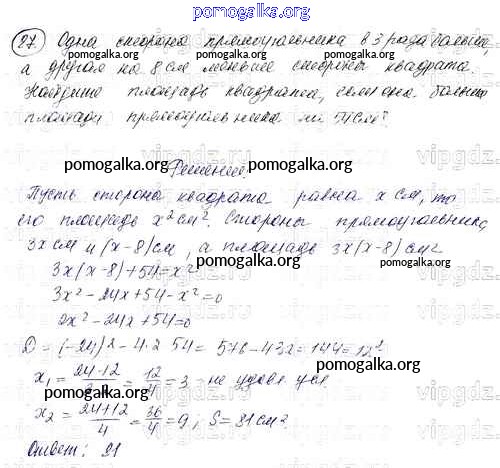 pomogalka.org
27. Одна сторона прямоугольника в 3 раза больше,
а другая на 8 см меньше стороны квадрата.
Найдите площадь квадрата, если она больше
площади прямоугольника на 54 см²
pomogalka.org Решение pomogalka.org
Пусть сторона квадрата равна x см, то
его площадь x² см². Стороны прямоугольника
3x см и (x-8) см, а площадь 3x(x-8) см²
3x(x-8)+54=x²
3x²-24x+54-x²=0
2x²-24x+54=0
D=(-24)²-4·2·54=576-432=144=12²
x₁=(24-12)/(2·2)=12/4=3 - не удовл. усл.
x₂=(24+12)/4=36/4=9; S=81 см²
Ответ: 81
pomogalka.org